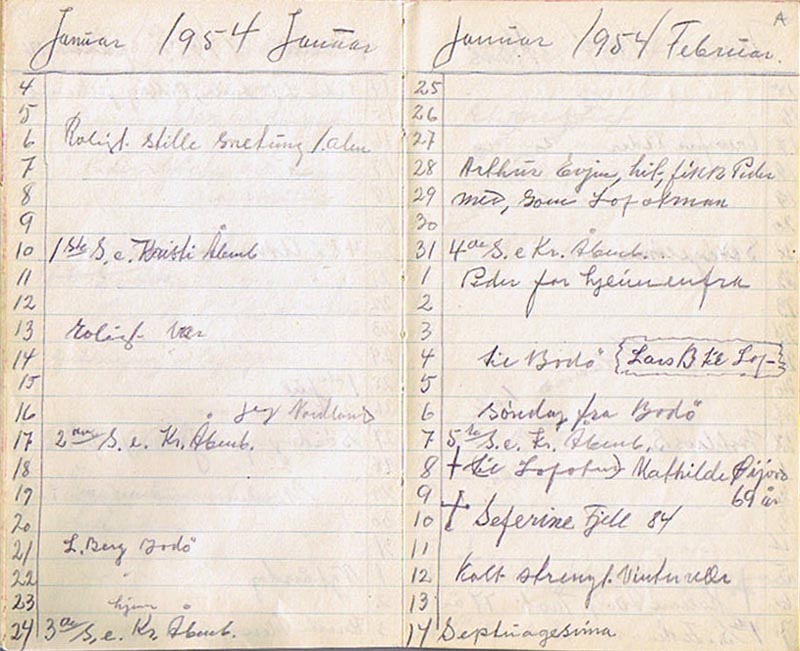 Januar 1954 Januar
4
5
6 Roligt stille snetung 1. alen
7
8
9
10 1ste S. e. Kristi Åbenb
11
12
13 Roligt Vær
14
15
16 jeg Nordland
17 2den S. e. Kr. Åbenb.
18
19
20
21 L. Berg Bodö
22
23 hjem
24 3die S. e. Kr. Åbenb.
Januar 1954 Februar.
A
25
26
27
28 Arthur Evjen, hit, fikk Peder
29 med, som Lofotman
30
31 4de S. e Kr. Åbenb.
1 Peder for hjemmenfra
2
3
4 til Bodö Lars B til Lof-
5
6 Søndag fra Bodö
7 5te S. e. Kr. Åbenb.
8 † til Lofoten) Mathilde Øijord
9 69 år
10 † Seferine Fjell 84
11
12 Kalt strengt Vinterveær
13
14 Septuagesima